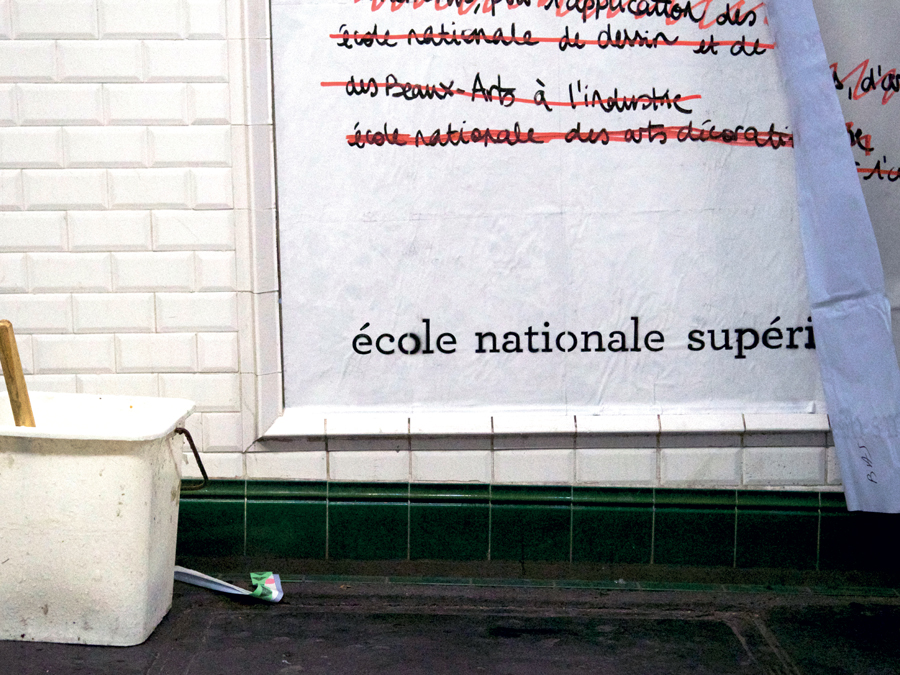 pour l'application des
école nationale de dessin et de
s, d'ar
des Beaux-Arts à l'industrie
école nationale des arts décorati
école nationale supéri